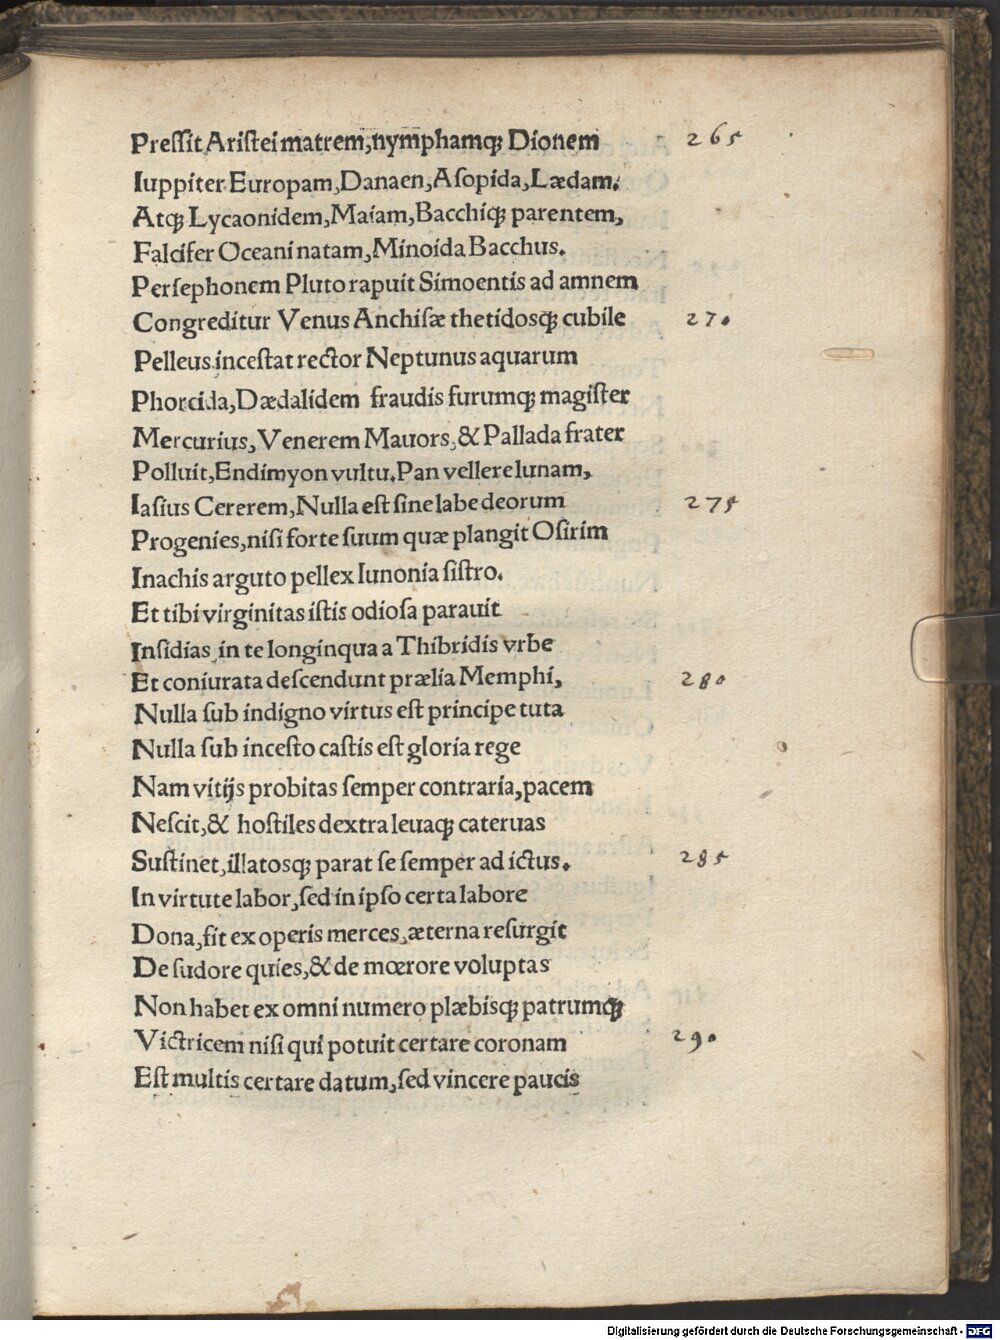 Preſſit Ariſtei matrem,nymphamqꝫ Dionem 265
Iuppiter Europam,Danaen,Aſopida,Lædam.
Atqꝫ Lycaonidem,Maiam,Bacchiqꝫ parentem,
Falcifer Oceani natam,Minoida Bacchus.
Perſephonem Pluto rapuit Simoentis ad amnem
Congreditur Venus Anchiſæ thetidosqꝫ cubile 270
Pelleus inceſtat rector Neptunus aquarum
Phorcida,Dædalidem fraudis furumqꝫ magiſter
Mercurius,Venerem Mauors,& Pallada frater
Polluit,Endimyon vultu.Pan vellere lunam,
Iaſius Cererem,Nulla eſt ſine labe deorum 275
Progenies,niſi forte ſuum quæ plangit Oſirim
Inachis arguto pellex Iunonia ſiſtro.
Et tibi virginitas iſtis odioſa parauit
Inſidias,in te longinqua a Thibridis vrbe
Et coniurata deſcendunt prælia Memphi, 280
Nulla ſub indigno virtus eſt principe tuta
Nulla ſub inceſto caſtis eſt gloria rege
Nam vitijs probitas ſemper contraria,pacem
Neſcit,& hoſtiles dextra leuaqꝫ cateruas
Suſtinet,illatosqꝫ parat ſe ſemper ad ictus. 285
In virtute labor,ſed in ipſo certa labore
Dona,fit ex operis merces,æterna reſurgit
De ſudore quies,& de mœrore voluptas
Non habet ex omni numero plæbisqꝫ patrumqꝫ
Victricem niſi qui potuit certare coronam 290
Eſt multis certare datum,ſed vincere paucis
Digitalisierung gefördert durch die Deutsche Forschungsgemeinschaft - DFG